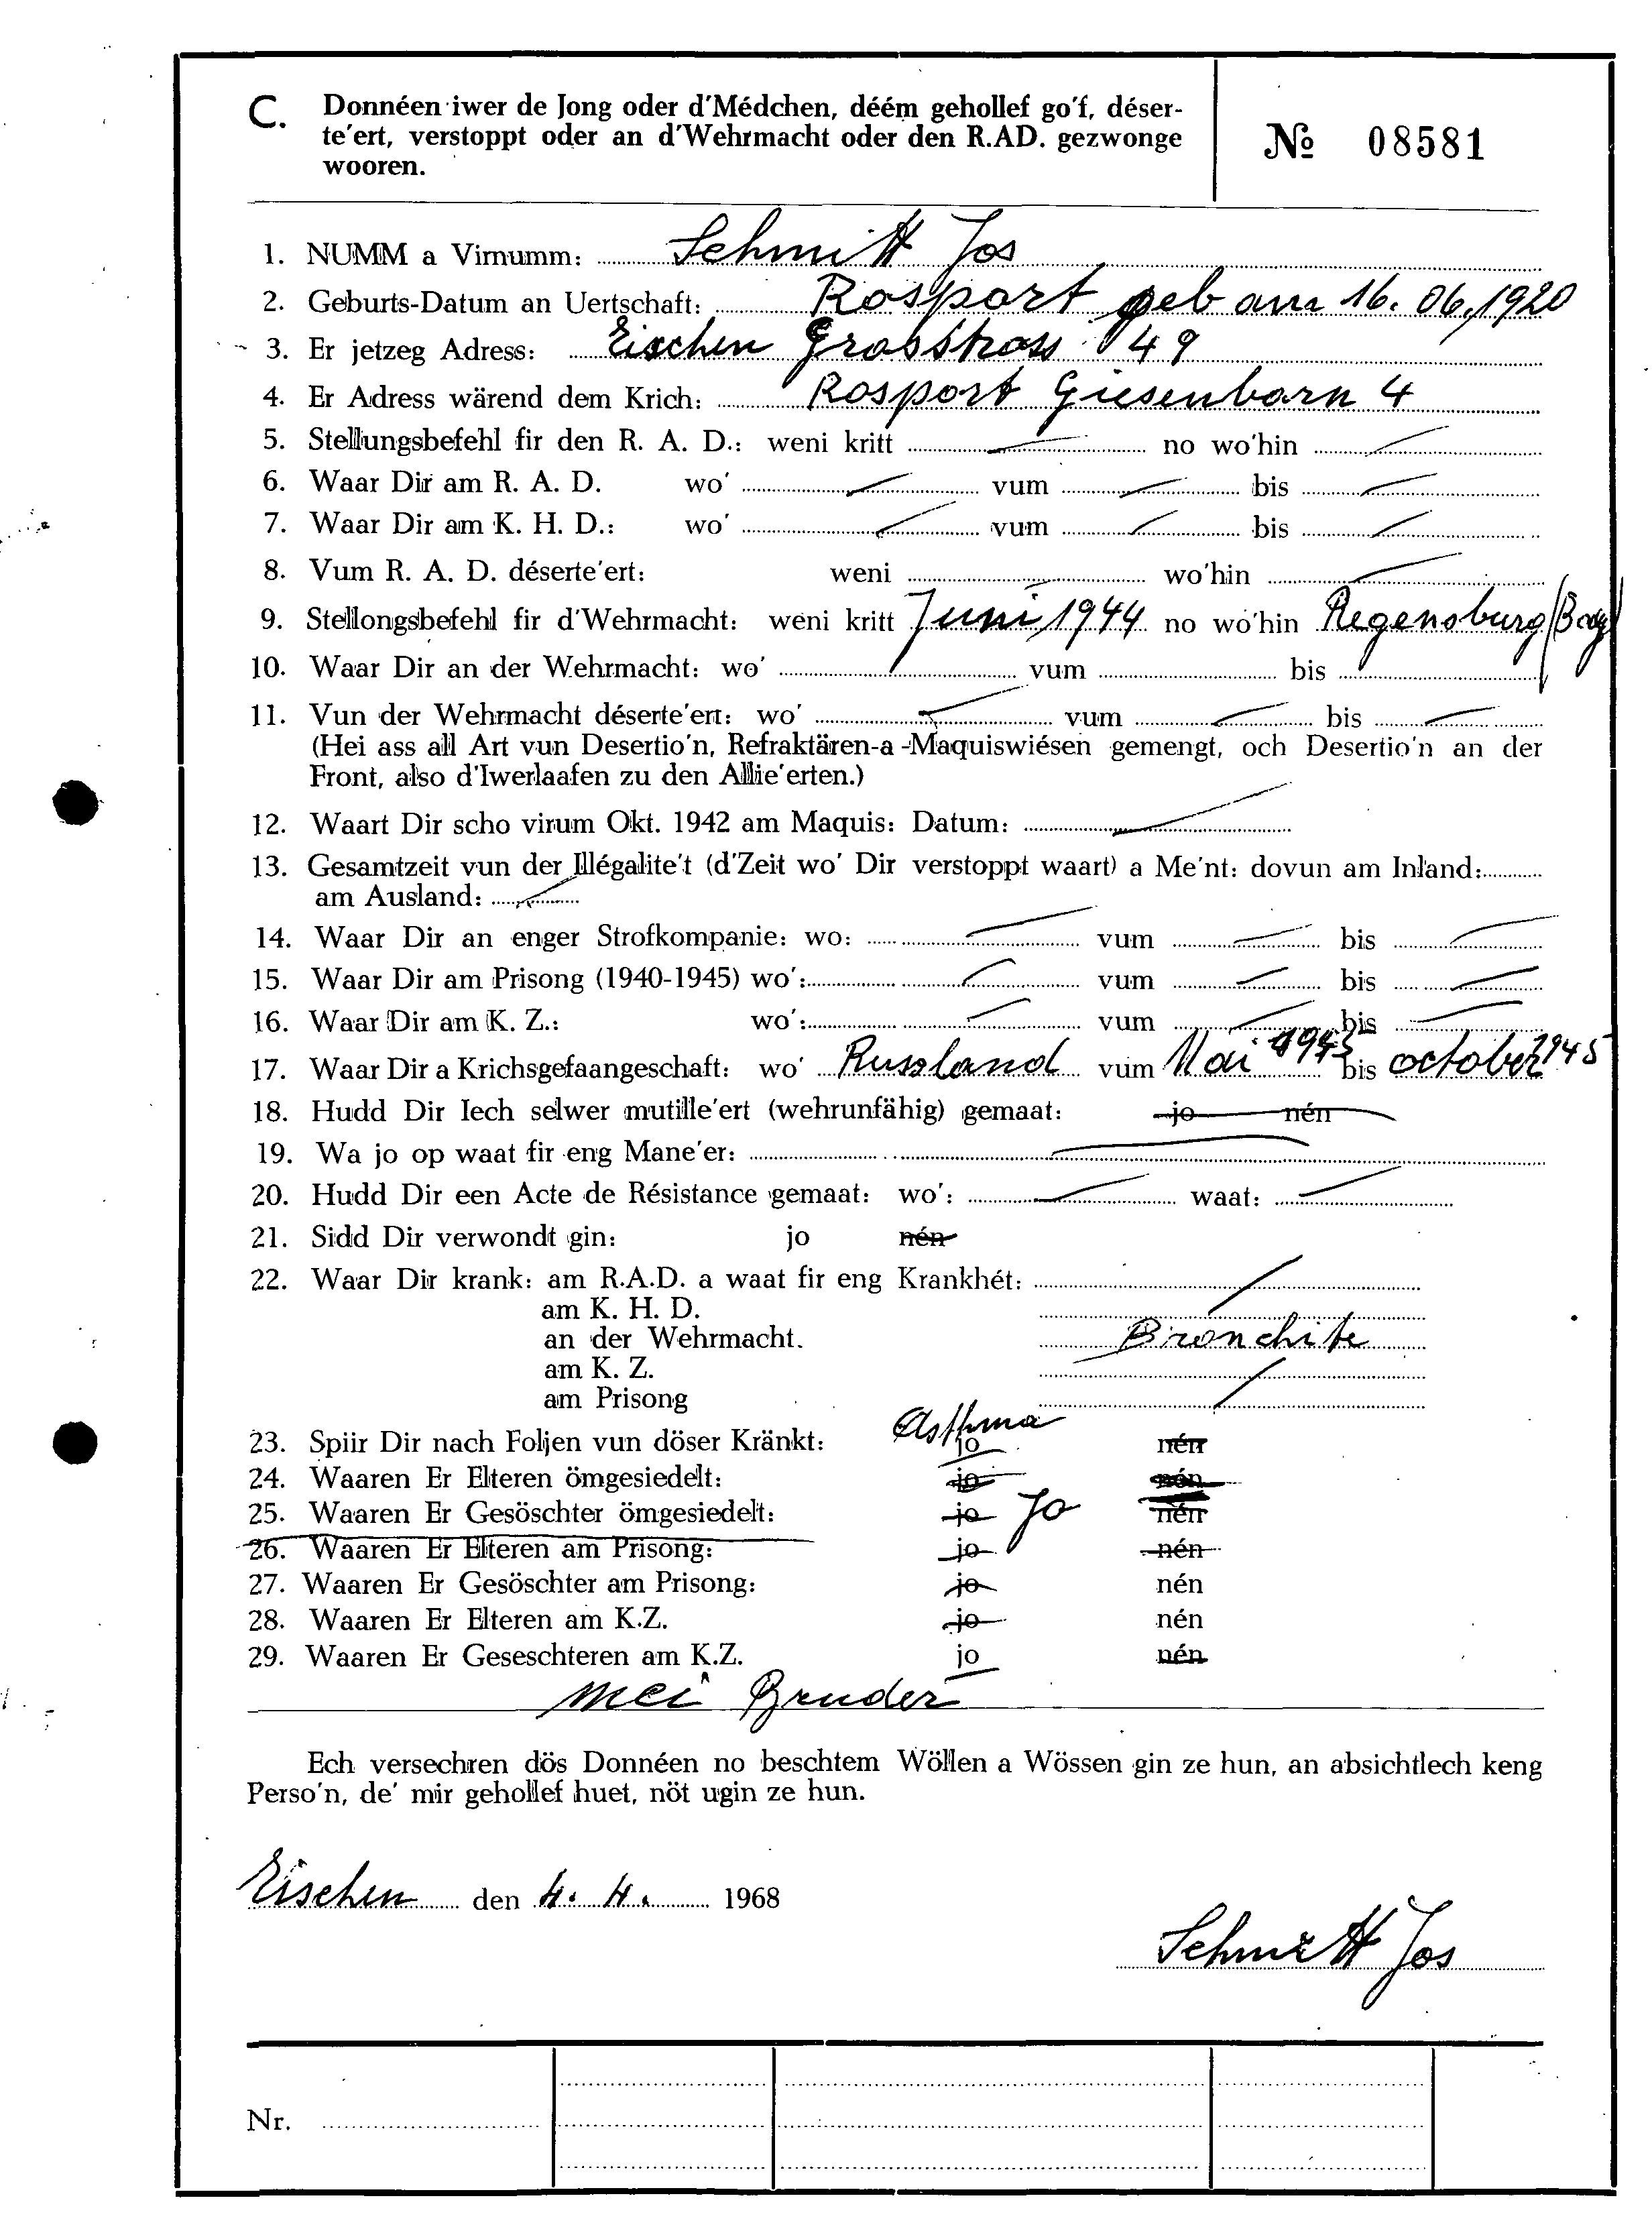 C. Donnéen iwer de Jong oder d'Médchen, déém gehollef go'f, déser-
te'ert, verstoppt oder an d'Wehrmacht oder den R.AD. gezwonge
wooren.
№ 08581
1. NUMM a Virnumm: Schmitt Jos
2. Geburts-Datum an Uertschaft: Rosport geb am 16.06.1920
3. Er jetzeg Adress: Eischen Grosstross 49
4. Er Adress wärend dem Krich: Rosport Giesenborn 4
5. Stellungsbefehl fir den R. A. D.: weni kritt no wo'hin
6. Waar Dir am R. A. D. wo' vum bis
7. Waar Dir am K. H. D.: wo' vum bis
8. Vum R. A. D. déserte'ert: weni wo'hin
9. Stellongsbefehl fir d'Wehrmacht: weni kritt Juni 1944 no wo'hin Regensburg
10. Waar Dir an der Wehrmacht: wo' vum bis
11. Vun der Wehrmacht déserte'ert: wo' vum bis
(Hei ass all Art vun Desertio'n, Refraktären-a-Maquiswiésen gemengt, och Desertio'n an der
Front, also d'Iwerlaafen zu den Allie'erten.)
12. Waart Dir scho virum Okt. 1942 am Maquis: Datum:
13. Gesamtzeit vun der Illégalite't (d'Zeit wo' Dir verstoppt waart) a Me'nt: dovun am Inland:
am Ausland:
14. Waar Dir an enger Strofkompanie: wo: vum bis
15. Waar Dir am Prisong (1940-1945) wo': vum bis
16. Waar Dir am K. Z.: wo': vum bis
17. Waar Dir a Krichsgefaangeschaft: wo' Russland vum Mai bis october 1945
18. Hudd Dir Iech selwer mutille'ert (wehrunfähig) gemaat: jo nén
19. Wa jo op waat fir eng Mane'er:
20. Hudd Dir een Acte de Résistance gemaat: wo': waat:
21. Sidd Dir verwondt gin: jo nén
22. Waar Dir krank: am R.A.D. a waat fir eng Krankhét:
am K. H. D.
an der Wehrmacht. Bronchite
am K. Z.
am Prisong
23. Spiir Dir nach Foljen vun döser Kränkt: Asthma jo nén
24. Waaren Er Elteren ömgesiedelt: jo nén
25. Waaren Er Gesöschter ömgesiedelt: jo Jo nén
26. Waaren Er Elteren am Prisong: jo nén
27. Waaren Er Gesöschter am Prisong: jo nén
28. Waaren Er Elteren am K.Z. jo nén
29. Waaren Er Geseschteren am K.Z. jo nén
mei Bruder
Ech versechren dös Donnéen no beschtem Wöllen a Wössen gin ze hun, an absichtlech keng
Perso'n, de' mir gehollef huet, nöt ugin ze hun.
Eischen den 4. 4. 1968
Schmitt Jos
Nr.